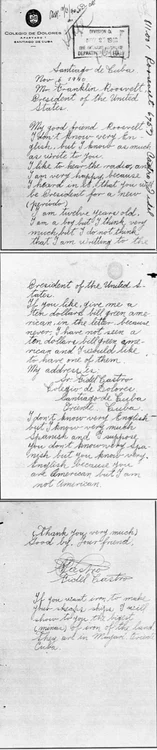 COLEGIO DE DOLORES
APARTADO 1
SANTIAGO DE CUBA
Santiago de Cuba
Nov 6 1940
Mr Franklin Roosvelt
President of the United
States.
My good friend Roosvelt
I don't know very En
glish, but I know as much
as write to you.
I like to hear the radio, and
I am very happy, because
I heard in it, that you will
be President for a new
(periodo)
I am twelve years old.
I am a boy but I think very
much but I do not think
that I am writting to the
President of the United S-
tates.
If you like, give me a
ten dollars bill green ame-
rican, in the letter, because
never, I have not seen a
ten dollars bill green ame-
rican and I would like
to have one of them.
My address is:
Sr. Fidel Castro
Colegio de Dolores
Santiago de Cuba
Oriente Cuba
I don't know very English
but I know very much
Spanish and I suppose
you don't know very Spa-
nish but you know very
English because you
are American but I am
not American.
(Thank you very much)
Good by. Your friend,
Castro
Fidel Castro
If you want iron to make
your sheaps ships I will
show to you the bigest
(minas) of iron of the land
They are in Mayari Oriente
Cuba.